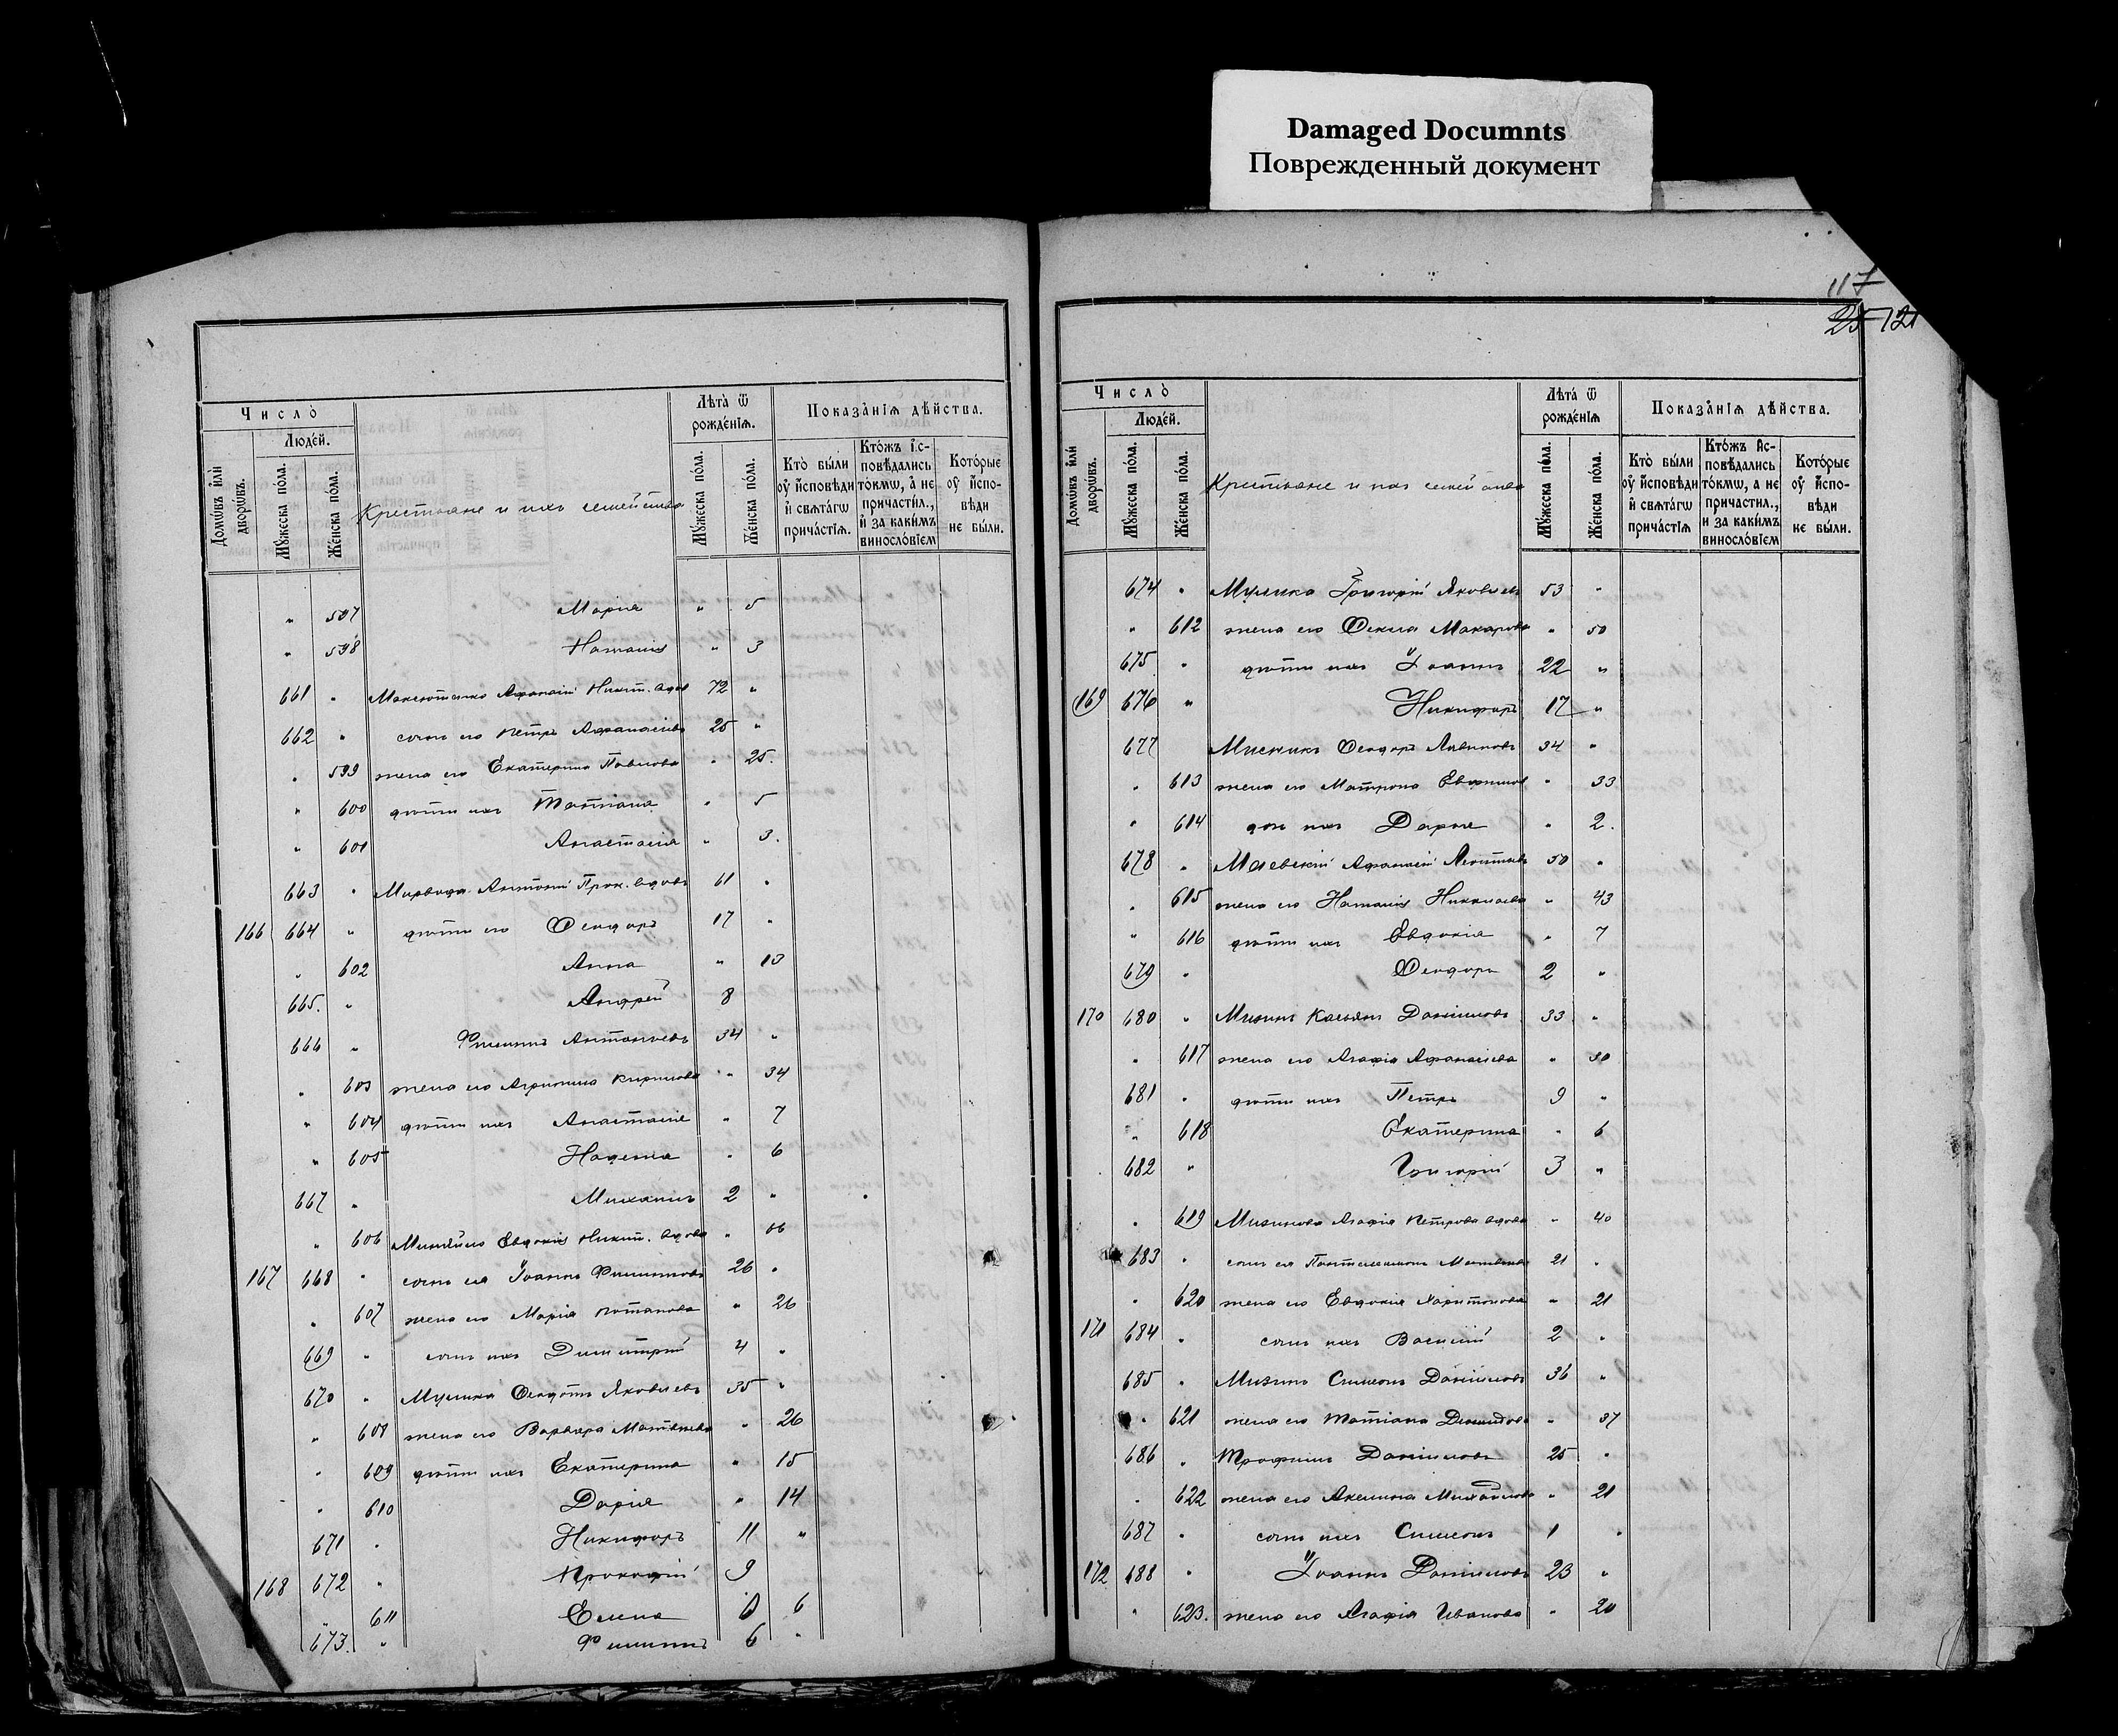 Damaged Documnts
Поврежденный документ
117
25 121
Число̀
Люде́й.
Домѡ́въ и҆лѝ дворѡ́въ.
Мꙋ́жеска по́ла.
Же́нска по́ла.
Крестьяне и ихъ семейства
Лѣта̀ ѿ рожде́нїѧ.
Мꙋ́жеска по́ла.
Же́нска по́ла.
Показа̑нїѧ дѣ́йства.
Кто̀ бы́ли оу҆ и҆сповѣди и҆ свѧта́гѡ прича́стїѧ.
Кто́жъ и҆сповѣдались то́кмѡ, а҆ не причасти́л., и҆ за каки́мъ винословїем
Кото́рые оу҆ и҆сповѣди не бы́ли.
" 597 Марія " 5
" 598 Наталія " 3
661 " Максютенко Афанасій Никит. вдов 72 "
662 " сынъ его Петръ Афанасіевъ 25 "
" 599 жена его Екатерина Павлова " 25.
" 600 дѣти ихъ Татіана " 5
" 601 Анастасія " 3.
663 " Антоній Прок. вдовъ 61 "
166 664 " дѣти его Феодоръ 17 "
" 602 Анна " 13
665. " Андрей 8
666 " Филиппъ Антоньевъ 34 "
" 603 жена его Агрипина Кирилова " 34
" 604 дѣти ихъ Анастасія " 7
" 605 Надежда " 6
667 " Михаилъ 2 "
" 606 Евдокія Никит. вдова " 66
167 668 " сынъ ея Іоаннъ Филипповъ 26 "
" 607 жена его Марія Потапова " 26
669 " сынъ ихъ Димитрій 4 "
670 " Мулика Феодотъ Яковлевъ 35 "
" 608 жена его Варвара Матвѣева " 26
" 609 дѣти ихъ Екатерина " 15
" 610 Дарія " 14
671 " Никифоръ 11 "
168 672 " Прокофій 9
" 611 Елена 6
673. " Филиппъ 6 "
Число̀
Люде́й.
Домѡ́въ и҆лѝ дворѡ́въ.
Мꙋ́жеска по́ла.
Же́нска по́ла.
Крестьяне и ихъ семейства
Лѣта̀ ѿ рожде́нїѧ
Мꙋ́жеска по́ла.
Же́нска по́ла.
Показа̑нїѧ дѣ́йства.
Кто̀ бы́ли оу҆ и҆сповѣди и҆ свѧта́гѡ прича́стїѧ
Кто́жъ и҆сповѣдались то́кмѡ, а не причастил., и за каки́мъ винословїем
Кото́рые оу҆ и҆сповѣди не бы́ли.
674 " Мулика Григорій Яковлевъ 53 "
" 612 жена его Фекла Макарова " 50
675 " дѣти ихъ Іоаннъ 22 "
169 676 " Никифоръ 17 "
677 Феодоръ 34 "
" 613 жена его Матрона " 33
" 614 дочь ихъ Дарья " 2.
678 " Маевскій Афанасій 50 "
" 615 жена его Наталія Николаева " 43
" 616 дѣти ихъ Евдокія " 7
679 " Феодоръ 2 "
170 680 " Мизинъ Касьянъ Даниловъ 33 "
" 617 жена его Агафія Афанасіева " 30
681 " дѣти ихъ Петръ 9 "
" 618 Екатерина " 6
682 " Григорій 3 "
" 619 Мизинова Агафія Петрова вдова " 40
683 " сынъ ея Пантелеимонъ 21 "
" 620 жена его Евдокія Харитонова " 21
171 684 " сынъ ихъ Василій 2 "
685 " Мизинъ Симеонъ Даниловъ 36 "
" 621 жена его Татіана Демидова " 37
686 " Трофимъ Даниловъ 25 "
" 622 жена его Акилина Михайлова " 21
687 " сынъ ихъ Симеонъ 1 "
172 688 " Іоаннъ Даниловъ 23 "
" 623. жена его Агафія Иванова " 20